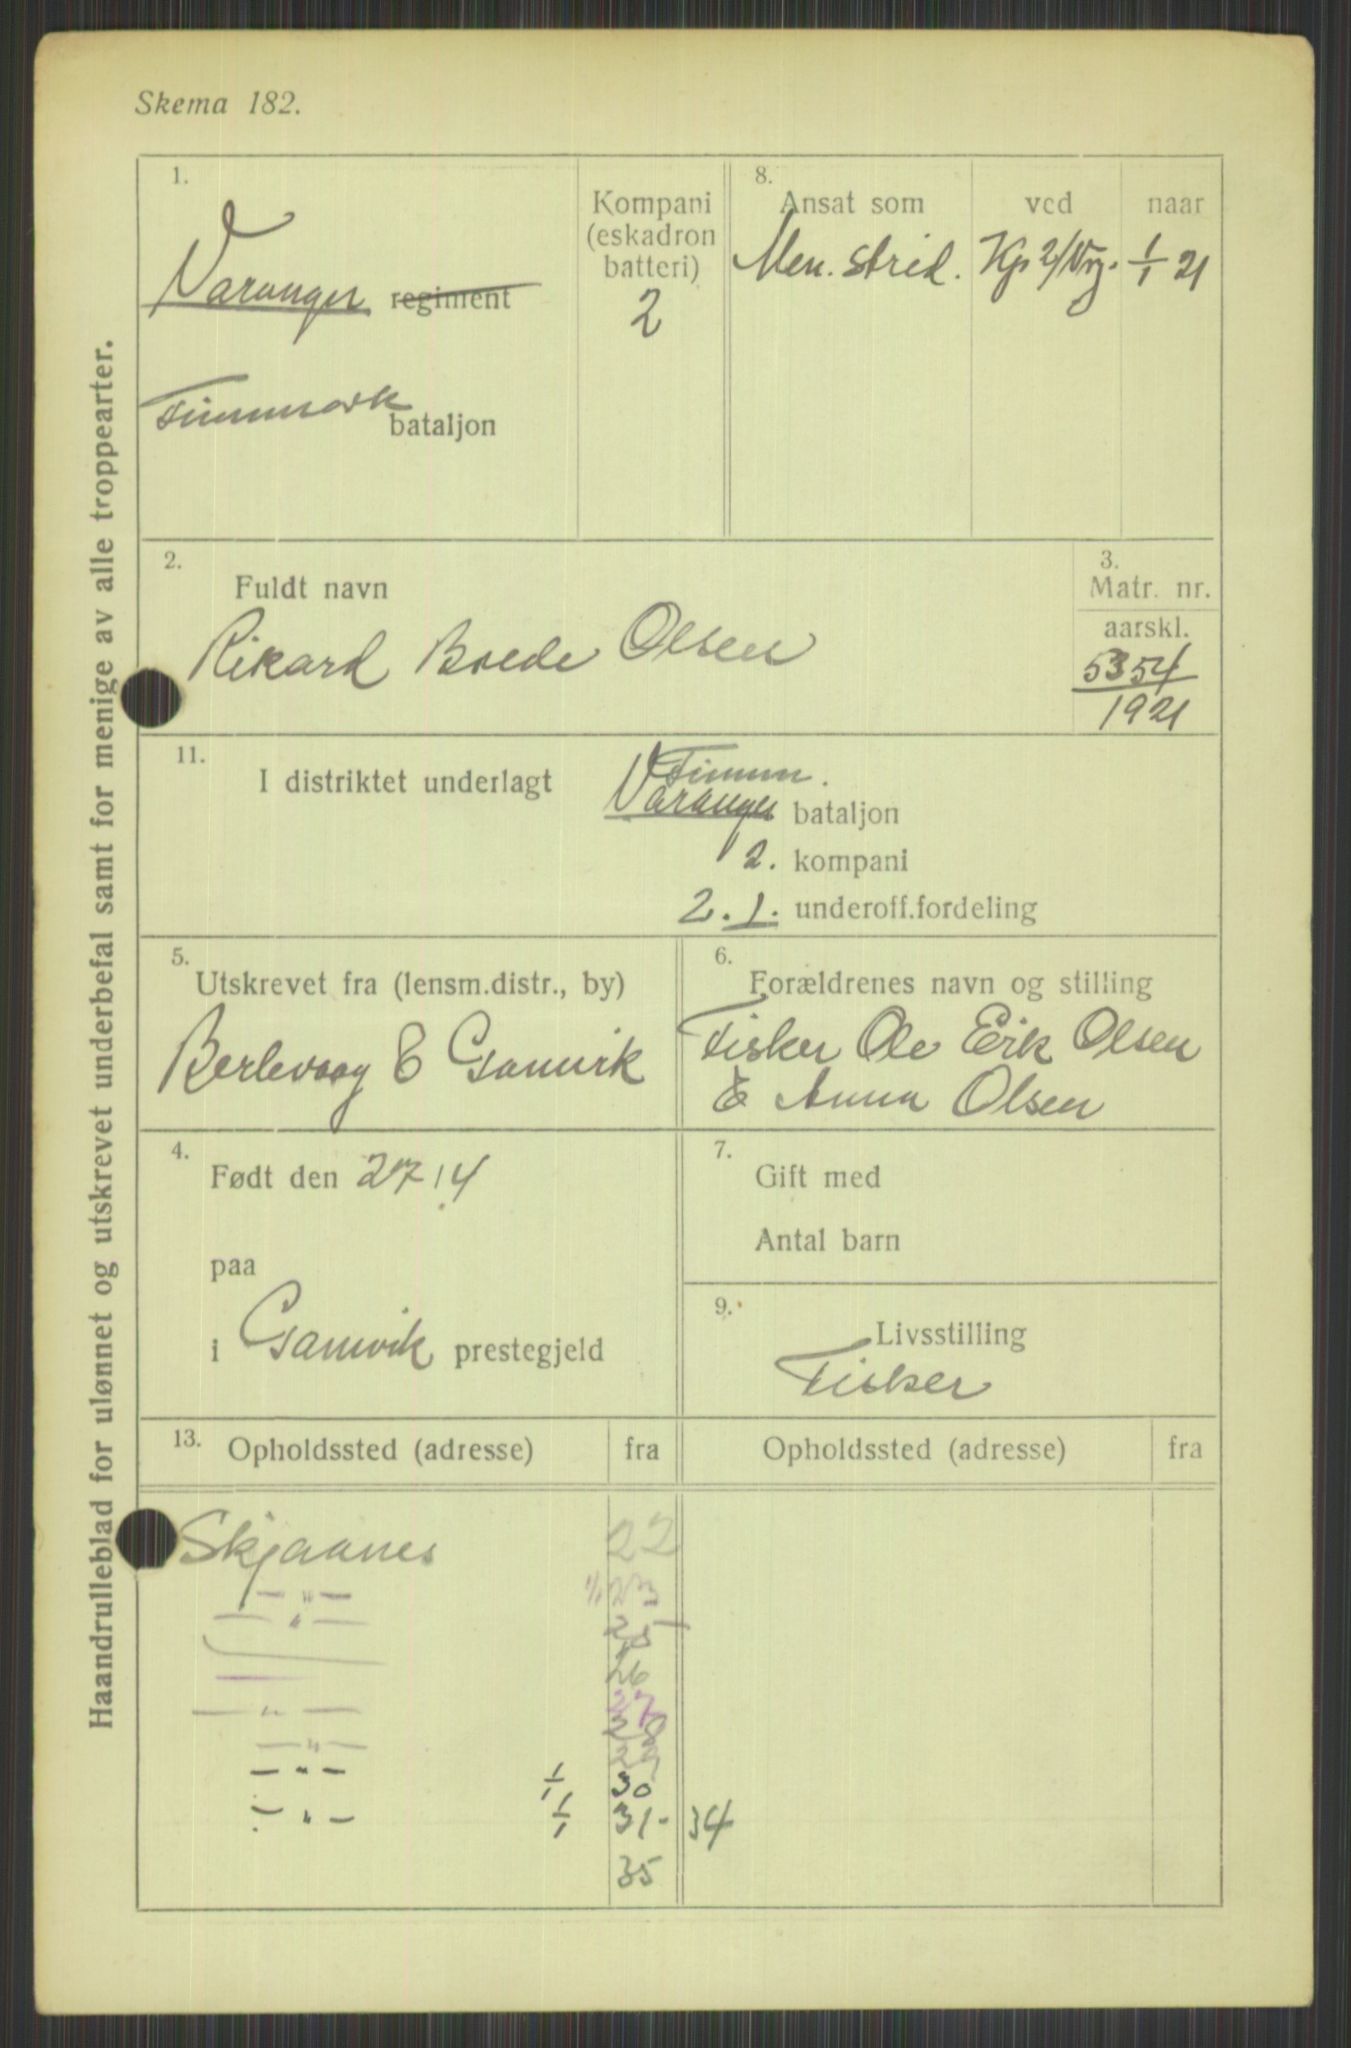 Skema 182.
Haandrulleblad for ulønnet og utskrevet underbefal samt for menige av alle troppearter.
1.
Varanger regiment
Finnmark bataljon
Kompani
(eskadron
batteri)
2
8.
Ansat som ved naar
Men. strid. Kp 2/Vrg. 1/1 21
2.
Fuldt navn
Rikard Brede Olsen
3.
Matr. nr.
aarskl.
5354
1921
11.
Finnm.
I distriktet underlagt Varanger bataljon
2. kompani
2. 1. underoff.fordeling
5.
Utskrevet fra (lensm.distr., by)
Berlevaag & Gamvik
6.
Forældrenes navn og stilling
Fisker Ole Erik Olsen
& Anna Olsen
4.
Født den 27/4
paa
i Gamvik prestegjeld
7.
Gift med
Antal barn
9.
Livsstilling
Fisker
13.
Opholdssted (adresse) fra Opholdssted (adresse) fra
Skjaanes 22
— " — 1/1 23
— " — 25
26
27
— " — 28
— " —
— " — 1/1 30
— " — 1/1 31- 34
35